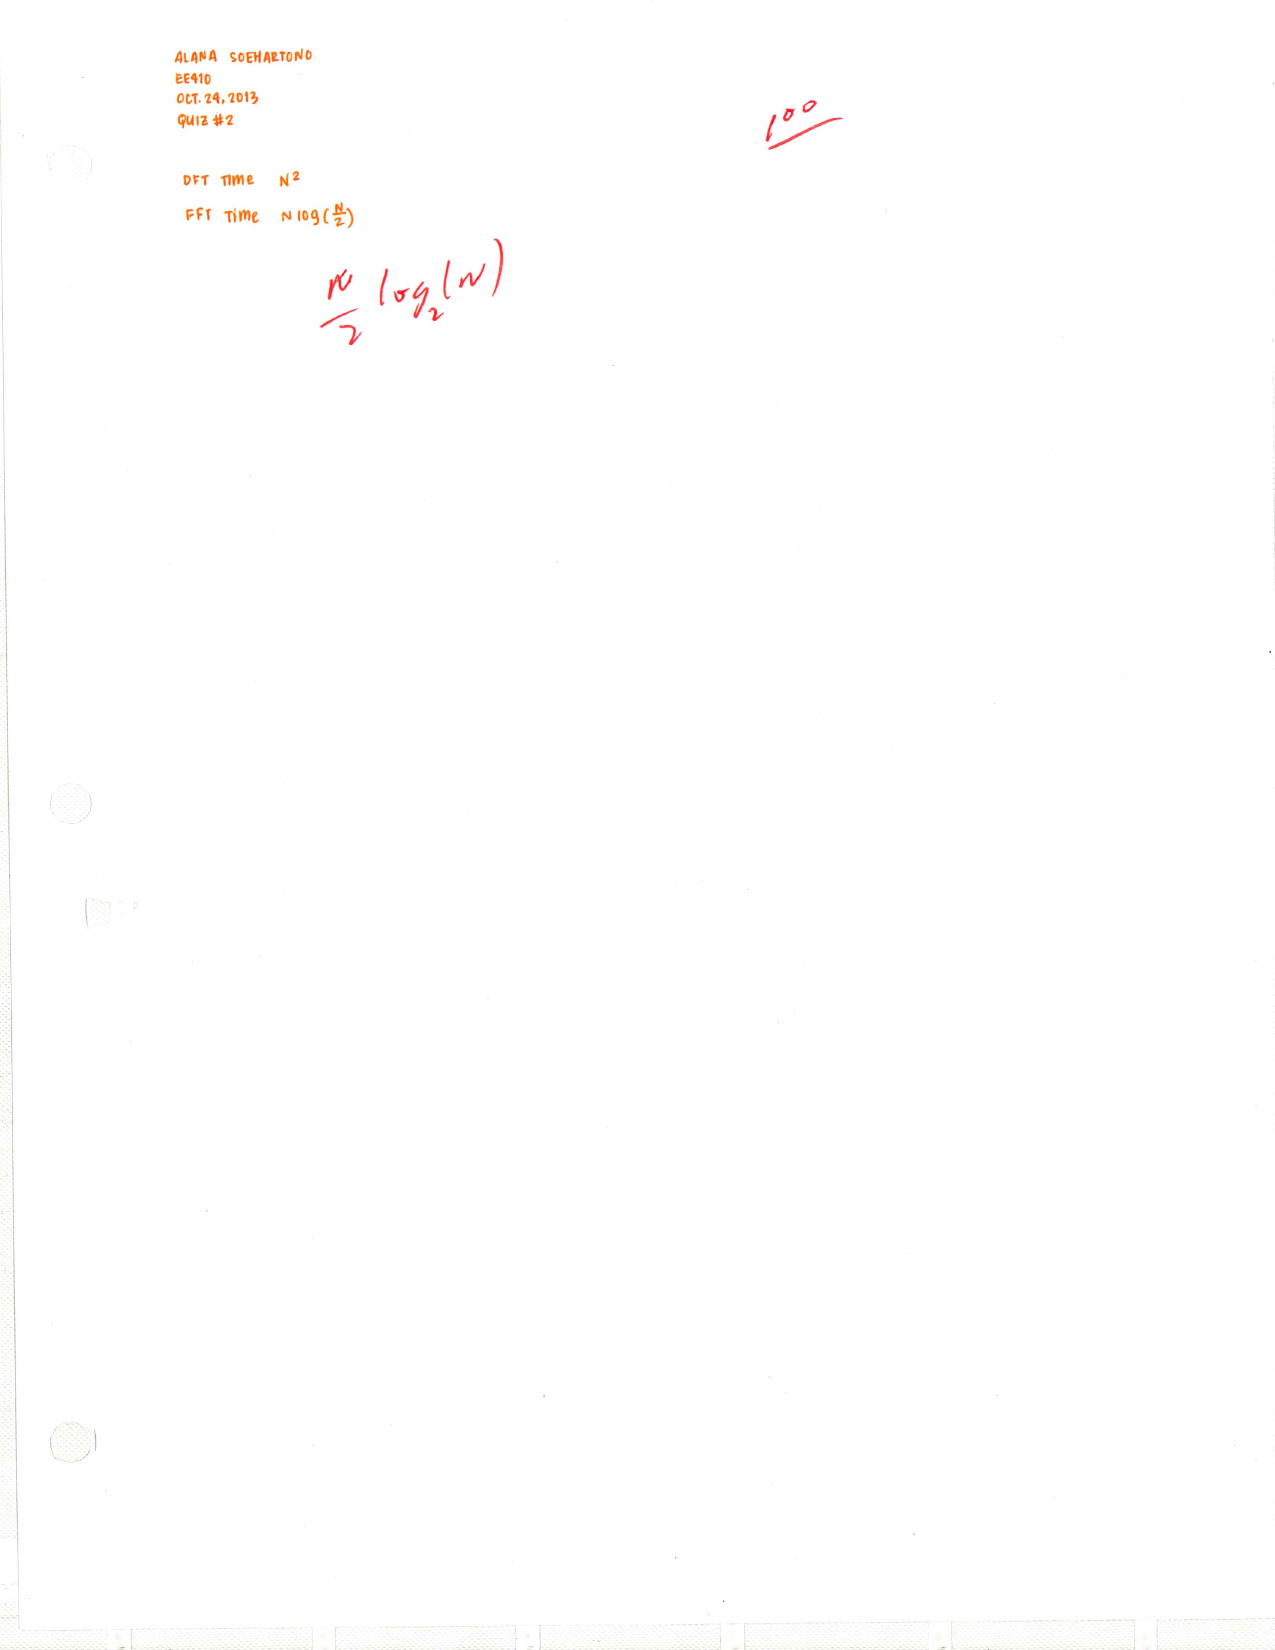 ALANA SOEHARTONO
EE410
OCT. 24, 2013
QUIZ #2
100
DFT TIME N²
FFT TIME N log(N/2)
N/2 log₂(N)